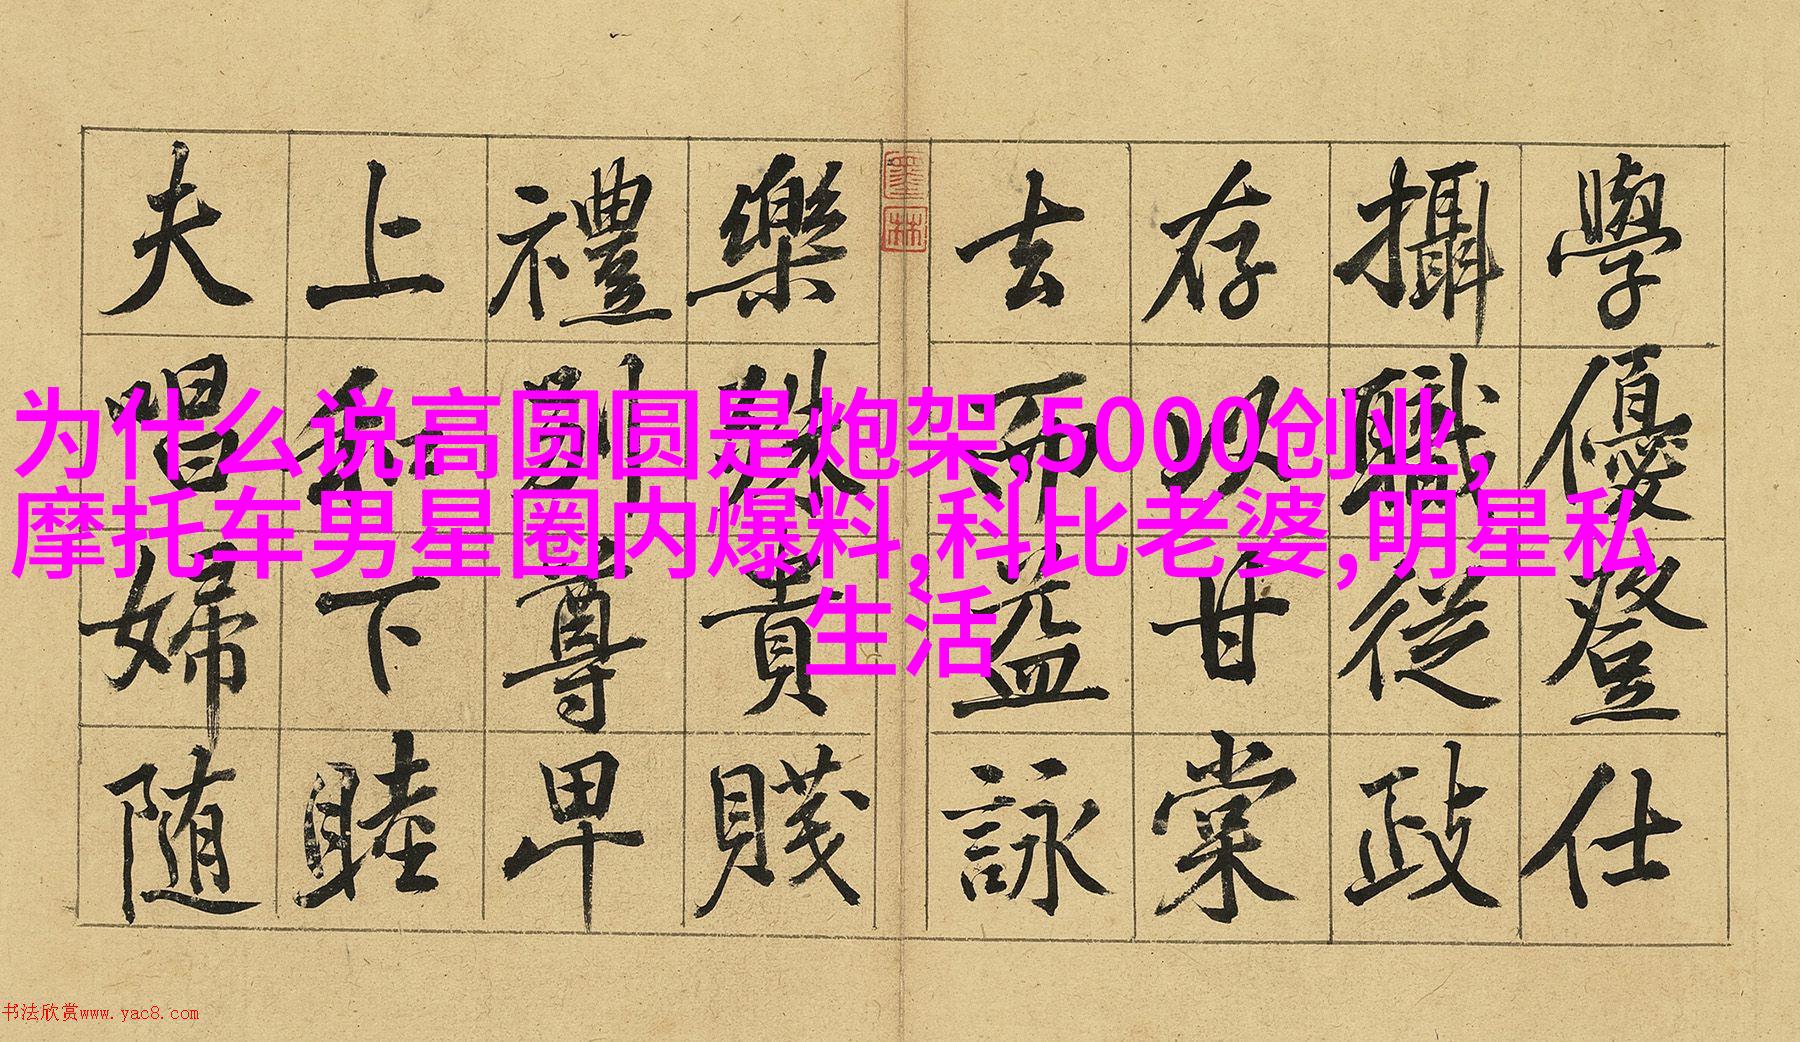 為什么说高圆圆是炮架,5000创业,
摩托车男星圈内爆料,科比老婆,明星私
生活
學優登仕
攝職從政
存以甘棠
去而益詠
樂殊貴賤
禮別尊卑
上和下睦
夫唱婦随
墨林
书法欣赏www.yac8.com